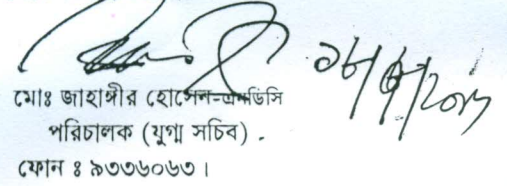 মোঃ জাহাঙ্গীর হোসেন-এনডিসি
পরিচালক (যুগ্ম সচিব) .
ফোন ঃ ৯৩৩৬০৬৩।